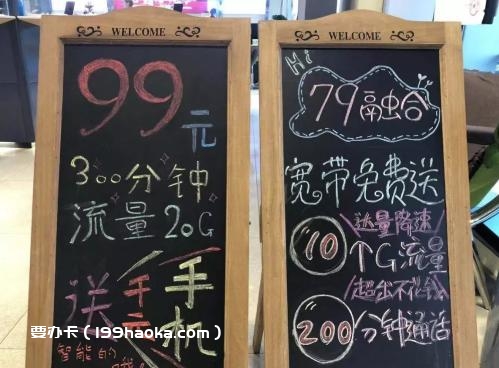 WELCOME
99元
300分钟
流量20G
送千元手机
智能的
WELCOME
Hi
79融合
宽带免费送
达量降速
10个G流量
超出不花钱
200分钟通话
要办卡（199haoka.com）